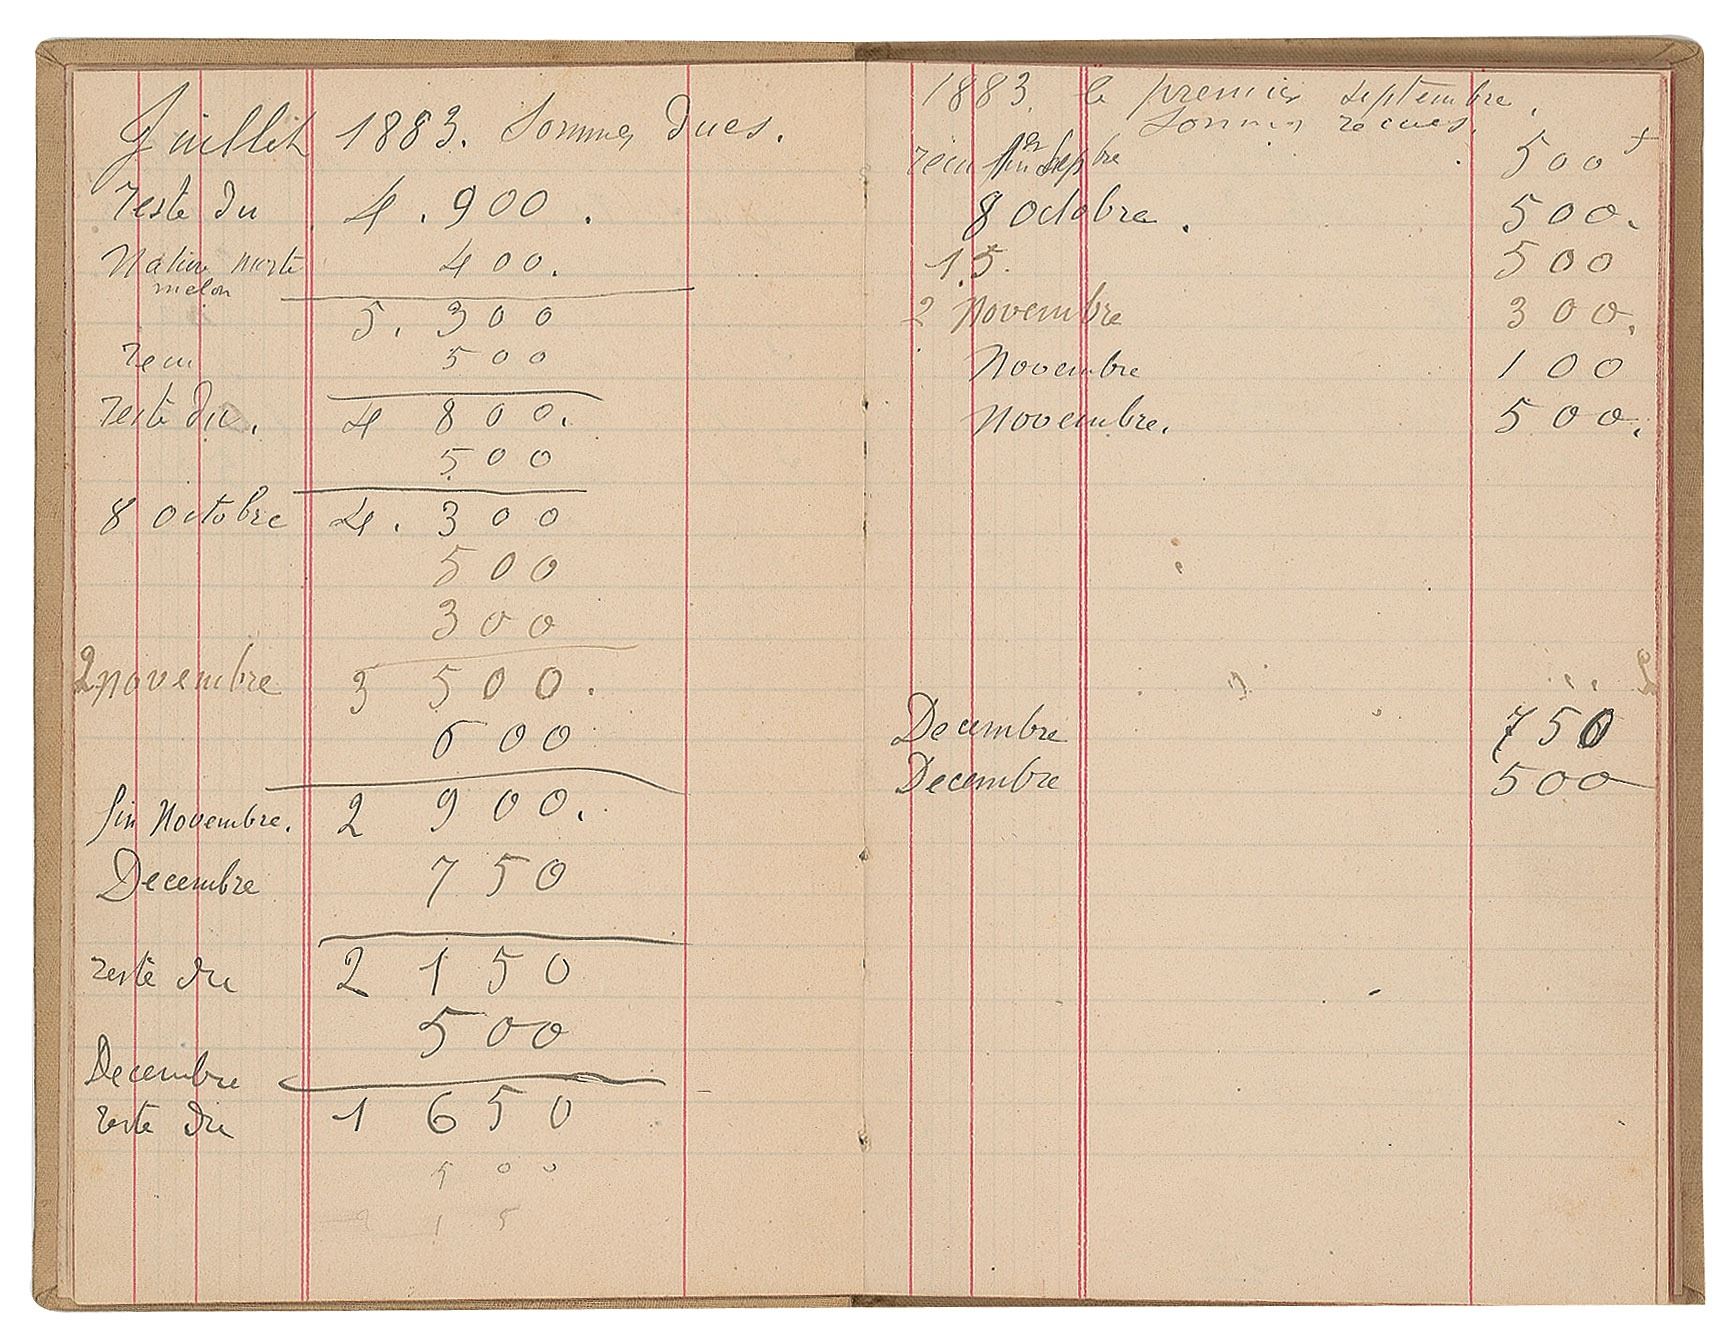 Juillet 1883. Sommes dues.
reste du 4.900.
Nature morte 400.
melon
5.300
recu 500
reste du. 4 800.
500
8 octobre 4.300
500
300
2 novembre 3 500.
600
fin Novembre. 2 900.
Decembre 750
reste du 2 150
500
Decembre
reste du 1 650
500
1883. le premier septembre.
Sommes recues.
recu fin Sepbre 500
8 octobre. 500.
15. 500
2 Novembre 300.
Novembre 100
Novembre. 500.
Decembre 750
Decembre 500